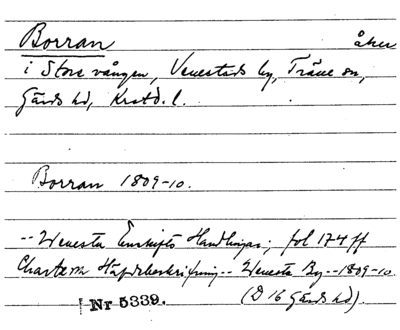 Borran åker
i Store vången, Venestads by, Träne sn,
Gärds hd, Krstd. l.
Borran 1809-10.
-- Wenesta Enskifts Handlingar; fol 174 ff
Charterna Häfdebeskrifning -- Wenesta By -- 1809-10.
(D 16 Gärds hd).
Nr 5339.